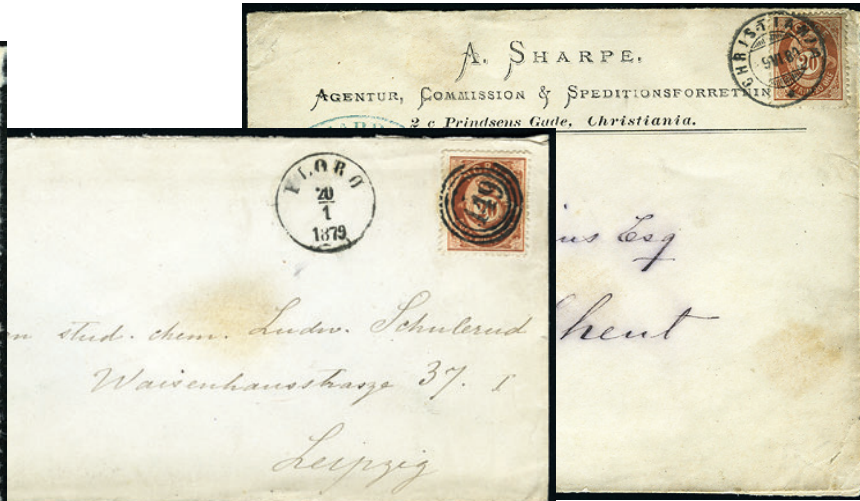 A. SHARPE,
AGENTUR, COMMISSION & SPEDITIONSFORRETNIN
2 c Prindsens Gade, Christiania.
CHRISTIANIA
9 VI 80
20
us Esq
FLORØ
20
1
1879
149
n stud. chem. Ludw. Schulerud
Waisenhausstrasze 37. I
Leipzig